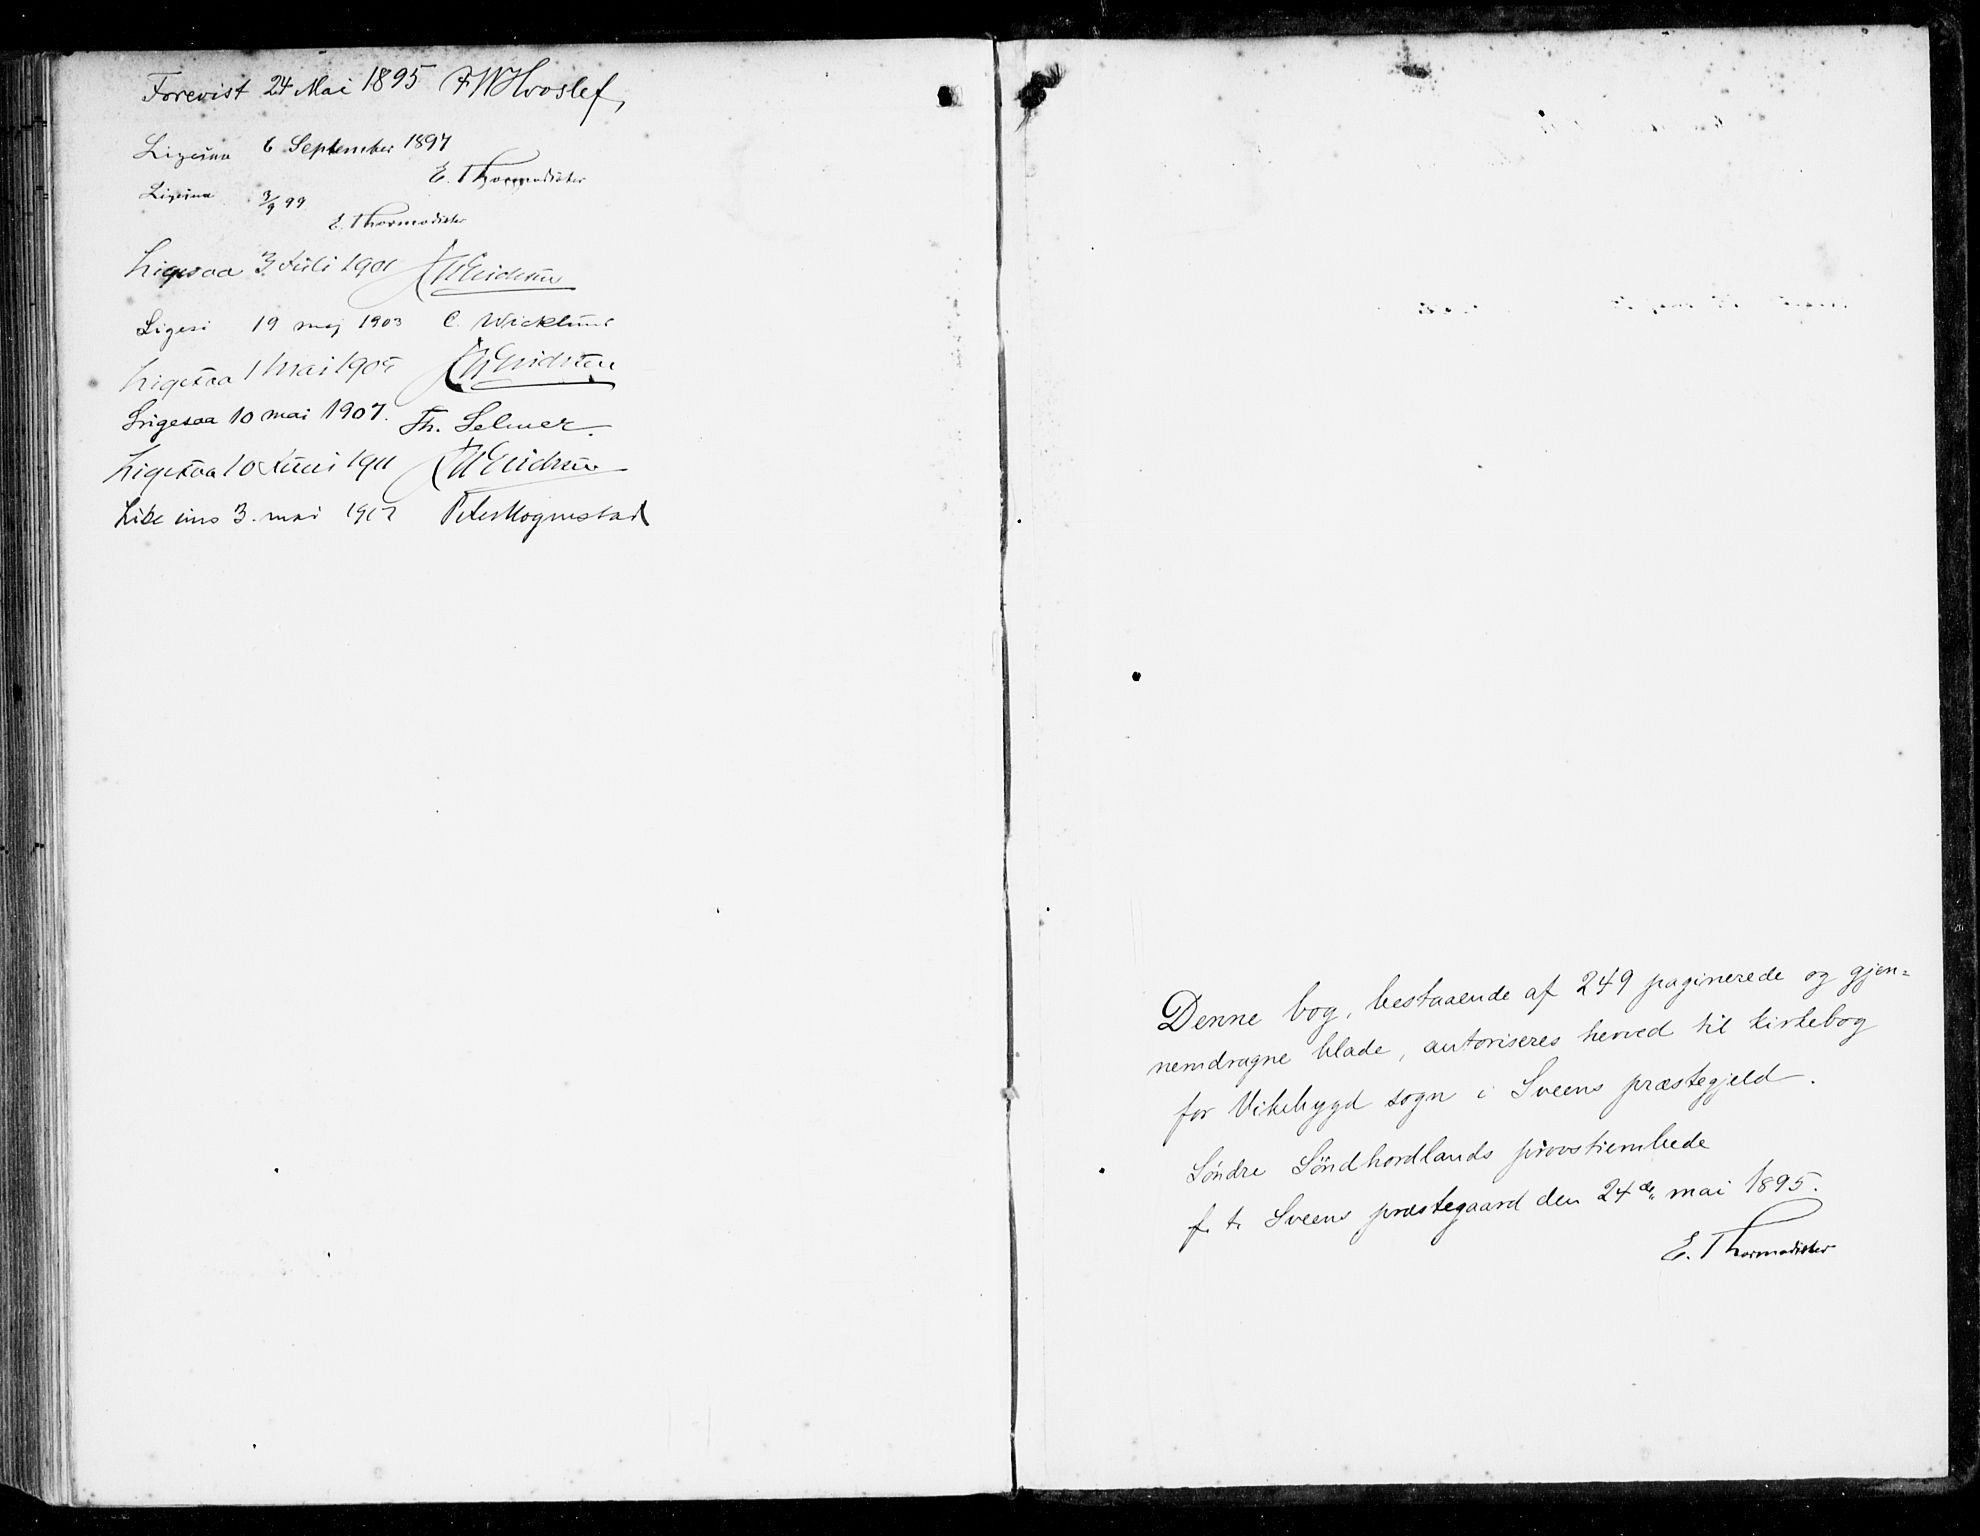 Forevist 24 Mai 1895 F W Hvoslef,
Ligesaa 6 September 1897
E. Thormodsæter
Ligesaa 3/9 99
E. Thormodsæter
Ligesaa 3 Juli 1901
Ligesaa 19 maj 1903 C. Wicklund
Ligesaa 1 Mai 1905
Ligesaa 10 mai 1907. Th. Selmer.
Ligesaa 10 Juni 1911
Like eins 3. mai 1917 Peter Hognestad
Denne bog, bestaaende af 249 paginerede og gjen=
nemdragne blade, autoriseres herved til kirkebog
for Vikebygd sogn i Sveens præstegjeld.
Søndre Søndhordlands provstiembede
f. t. Sveens præstegaard den 24de mai 1895.
E. Thormodsæter